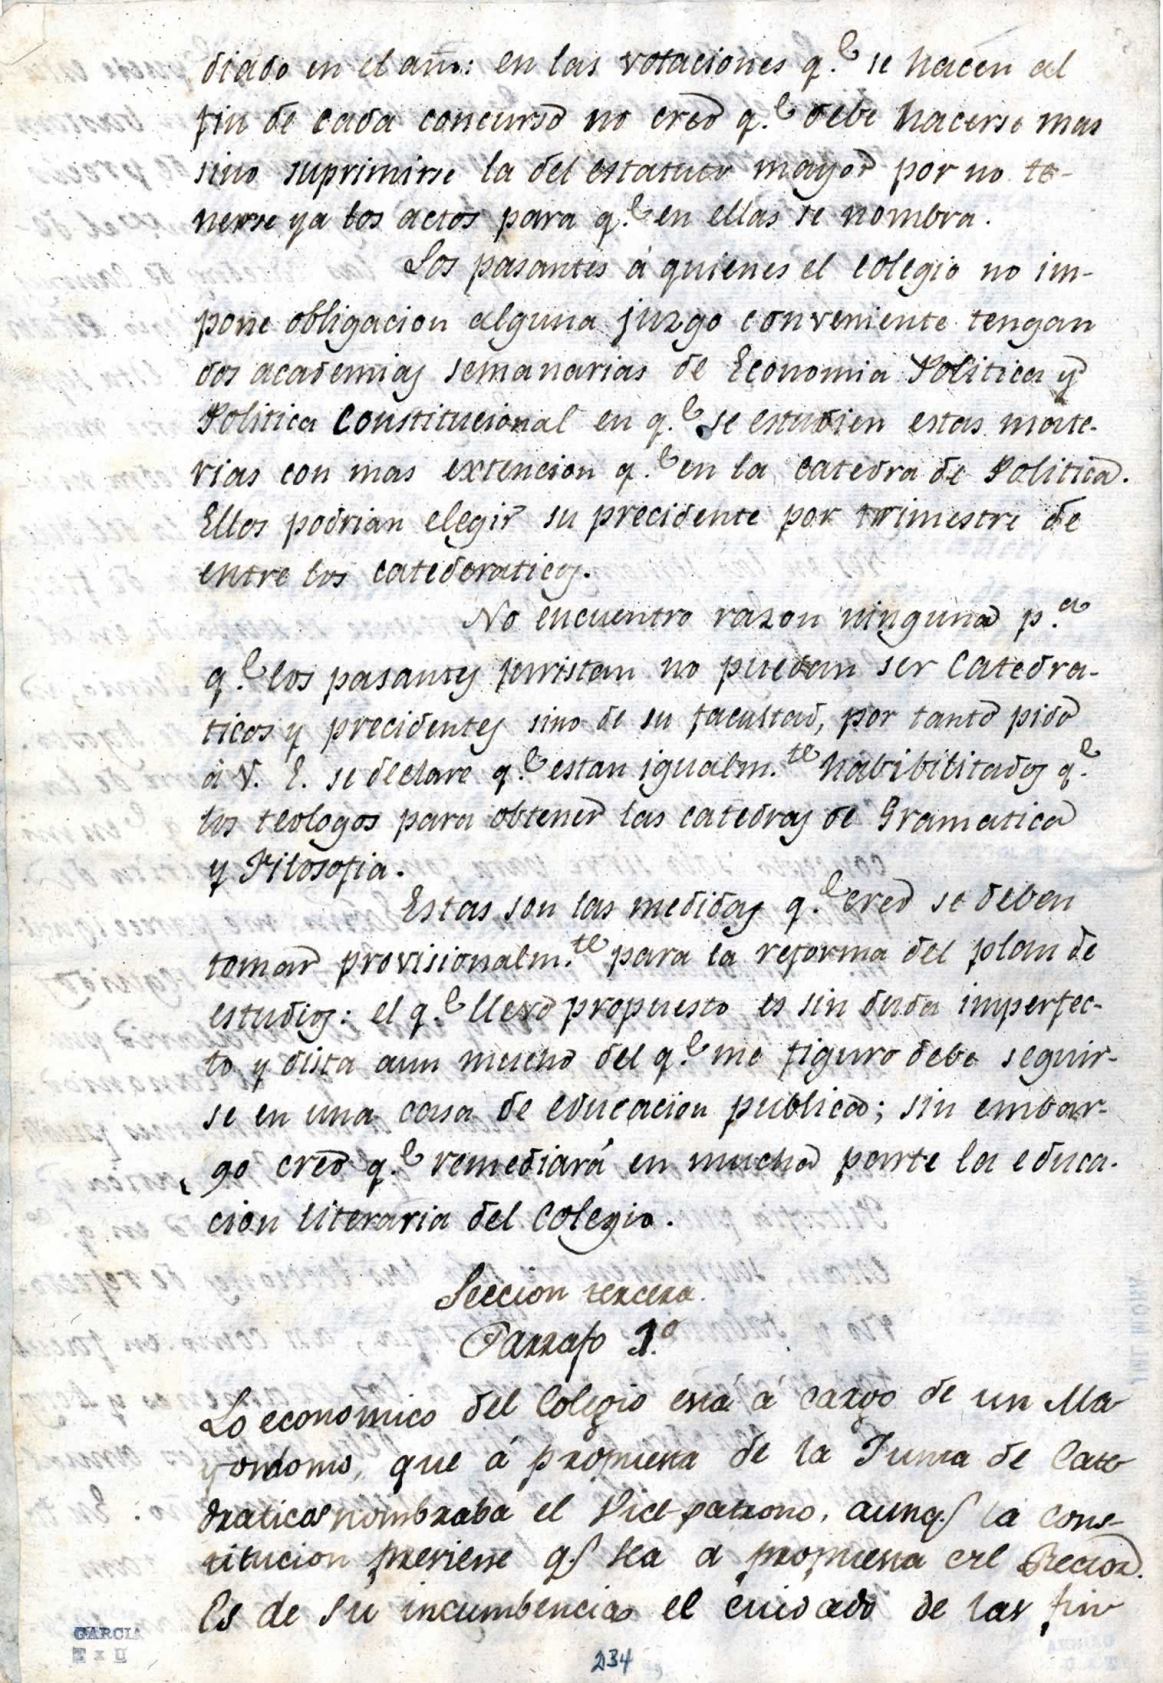 diado en el año: en las votaciones q.e se hacen al
fin de cada concurso no creo q.e debe hacerse mas
sino suprimirse la del estatuto mayor por no te-
nerse ya los actos para q.e en ellas se nombra.
Los pasantes á quienes el colegio no im-
pone obligacion alguna juzgo conveniente tengan
dos academias semanarias de Economia Politica y
Politica Constitucional en q.e se estudien estas mate-
rias con mas extencion q.e en la catedra de Politica.
Ellos podrian elegir su precidente por trimestre de
entre los catedraticos.
No encuentro razon ninguna p.a
q.e los pasantes juristan no puedan ser Catedra-
ticos y precidentes sino de su facultad, por tanto pido
á V. E. se declare q.e estan igualm.te habibilitados q.e
los teologos para obtener las catedras de Gramatica
y Filosofia.
Estas son las medidas q.e creo se deben
tomar provisionalm.te para la reforma del plan de
estudios: el q.e llevo propuesto es sin duda imperfec-
to y dista aun mucho del q.e me figuro debe seguir-
se en una casa de educacion publica; sin embar-
go creo q.e remediará en mucha parte la educa-
cion literaria del Colegio.
Seccion tercera.
Parrafo 1.o
Lo economico del Colegio está á cargo de un Ma-
yordomo, que á propuesta de la Junta de Cate-
draticos nombraba el Vice-patrono, aunq. la Cons-
titucion previene q. sea a propuesta del Rector.
Es de su incumbencia el cuidado de las fin-
GARCIA
234